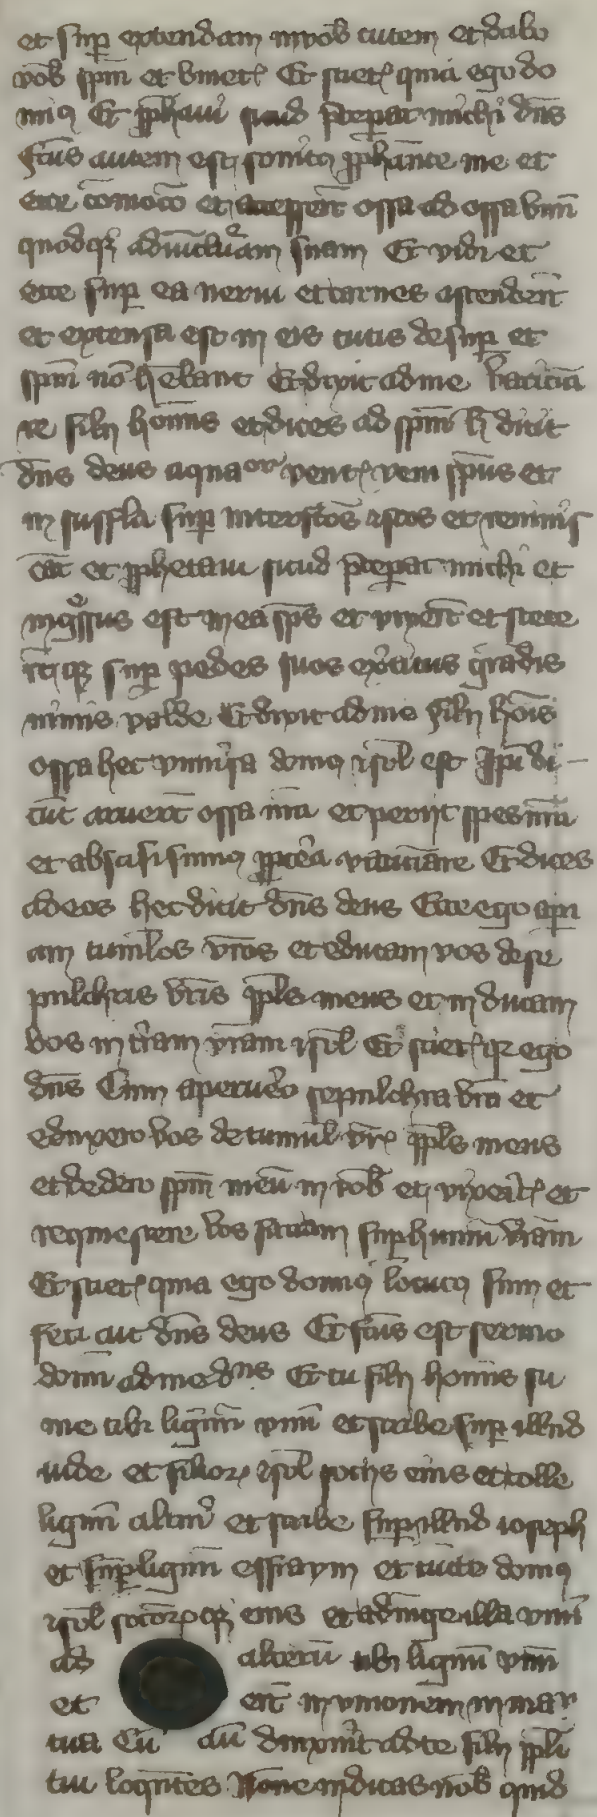 et sup extendam in vob cutem et dabo
vob spm et vivet Et sciet quia ego do
minus Et pphavi sicud pceperat michi dns
fcus autem est sonitus pphante me et
ecce comocio et accesserut ossa ad ossa vnu
quodq ad iuncturam suam Et vidi et
ecce sup ea nerui et carnes ascenderut
et extensa est in eis cutis desup et
spm no hebant Et dixit ad me vaticina
re fili hominis et dices ad spm h dicit
dns deus a quatuor ventis veni spus et
in suffla sup interfectos istos et reuiuis
cat et pphetaui sicud pceperat michi et
ingressus est in ea sps et vixerut et stete
rutq sup pedes suos exercitus grandis
nimis valde Et dixit ad me fili hois
ossa hec vniuersa domus isrl est Ipi di
cut aruerut ossa nra et periit spes nra
et abscisi sumus pptera vaticinare Et dices
ad eos hec dicit dns deus Ecce ego aperi
am tumulos vros et educam vos de se
pulchris vris ppls meus et in ducam
vos in terram vram isrl Et sciet qr ego
dns Cum aperuero sepulchra vra et
eduxero vos de tumul vris ppls meus
et dedero spm meu in vob et vixerit et
requiescere vos faciam sup humu vram
Et sciet quia ego dominus locutus sum et
feci ait dns deus Et fcus est sermo
domini ad me dns Et tu fili hominis su
me tibi lignum vnu et scribe sup illud
iude et filior isrl sociis eius et tolle
lignum alteru et scribe sup illud ioseph
et sup lignum effraym et cucte domus
isrl sociorq eius et adiunge illa vnu
ad alteru tibi lignum vnu
et erut in vnionem in manu
tua Cu au dixerint ad te filii ppli
tui loquentes None indicas nob quid